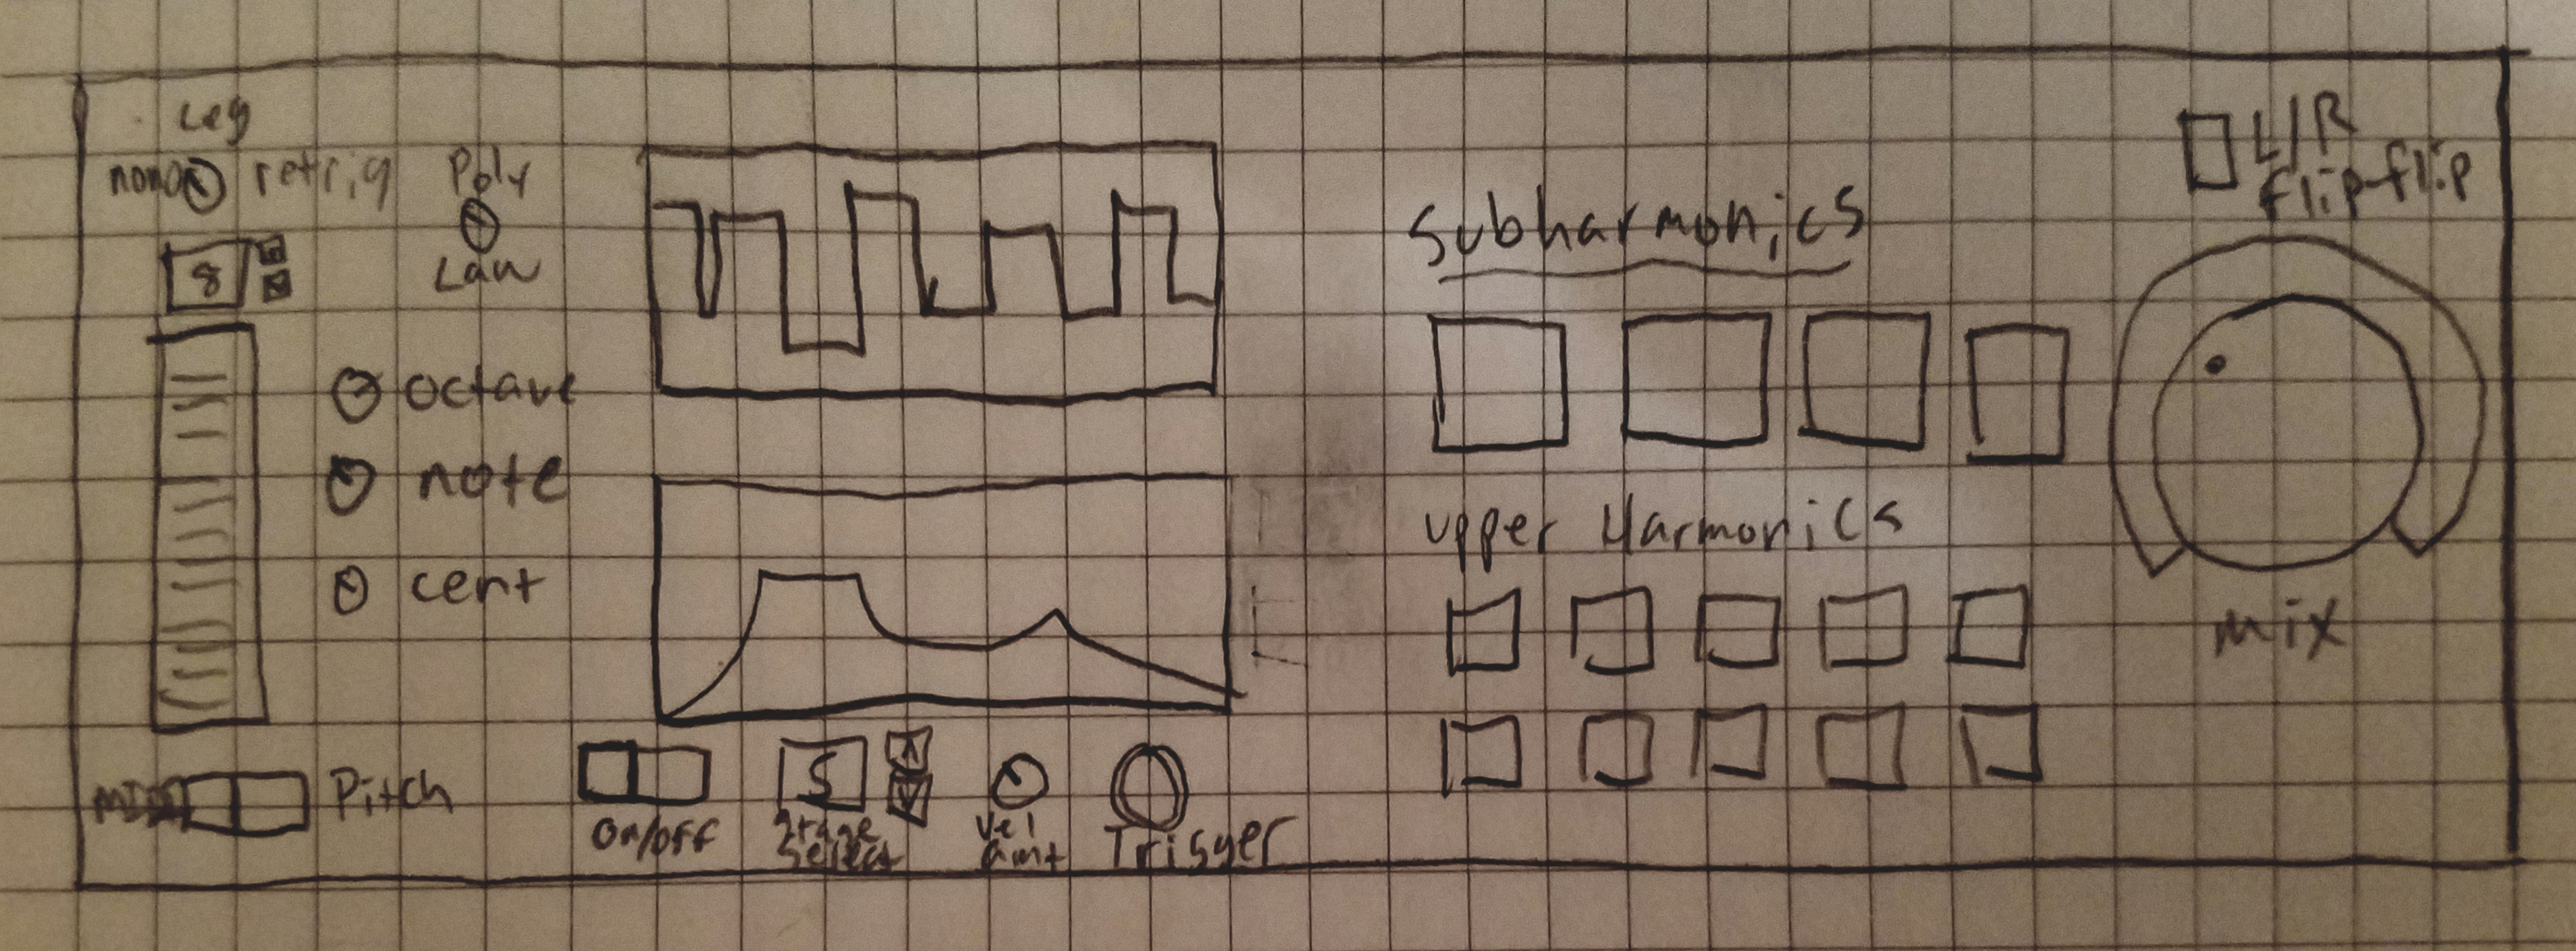 Leg
mono retrig
Poly
Law
8
octave
note
cent
Pitch
on/off
5
Stage
Select
Vel
amt
Trigger
Subharmonics
upper Harmonics
L/R
flip-flip
mix